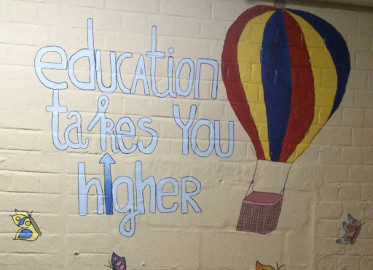 education
takes you
higher